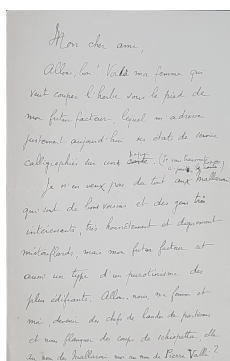 Mon cher ami,
Allons, bon ! Voilà ma femme qui
veut couper l'herbe sous le pied de
mon futur facteur, lequel m'adresse
justement aujourd'hui ses états de service
calligraphiés sur une
Je n'en veux pas du tout aux
qui sont de bons voisins et des gens très
intéressants, très honnêtement et dignement
mistouflards, mais mon futur facteur est
aussi un type d'un purotinisme des
plus édifiants. Allons, nous, ma femme et
moi, devenir des chefs de bandes de partisans
et nous flanquer des coups de schiopetta, elle
au nom de Mallarmé moi au nom de Pierre Vallé ?